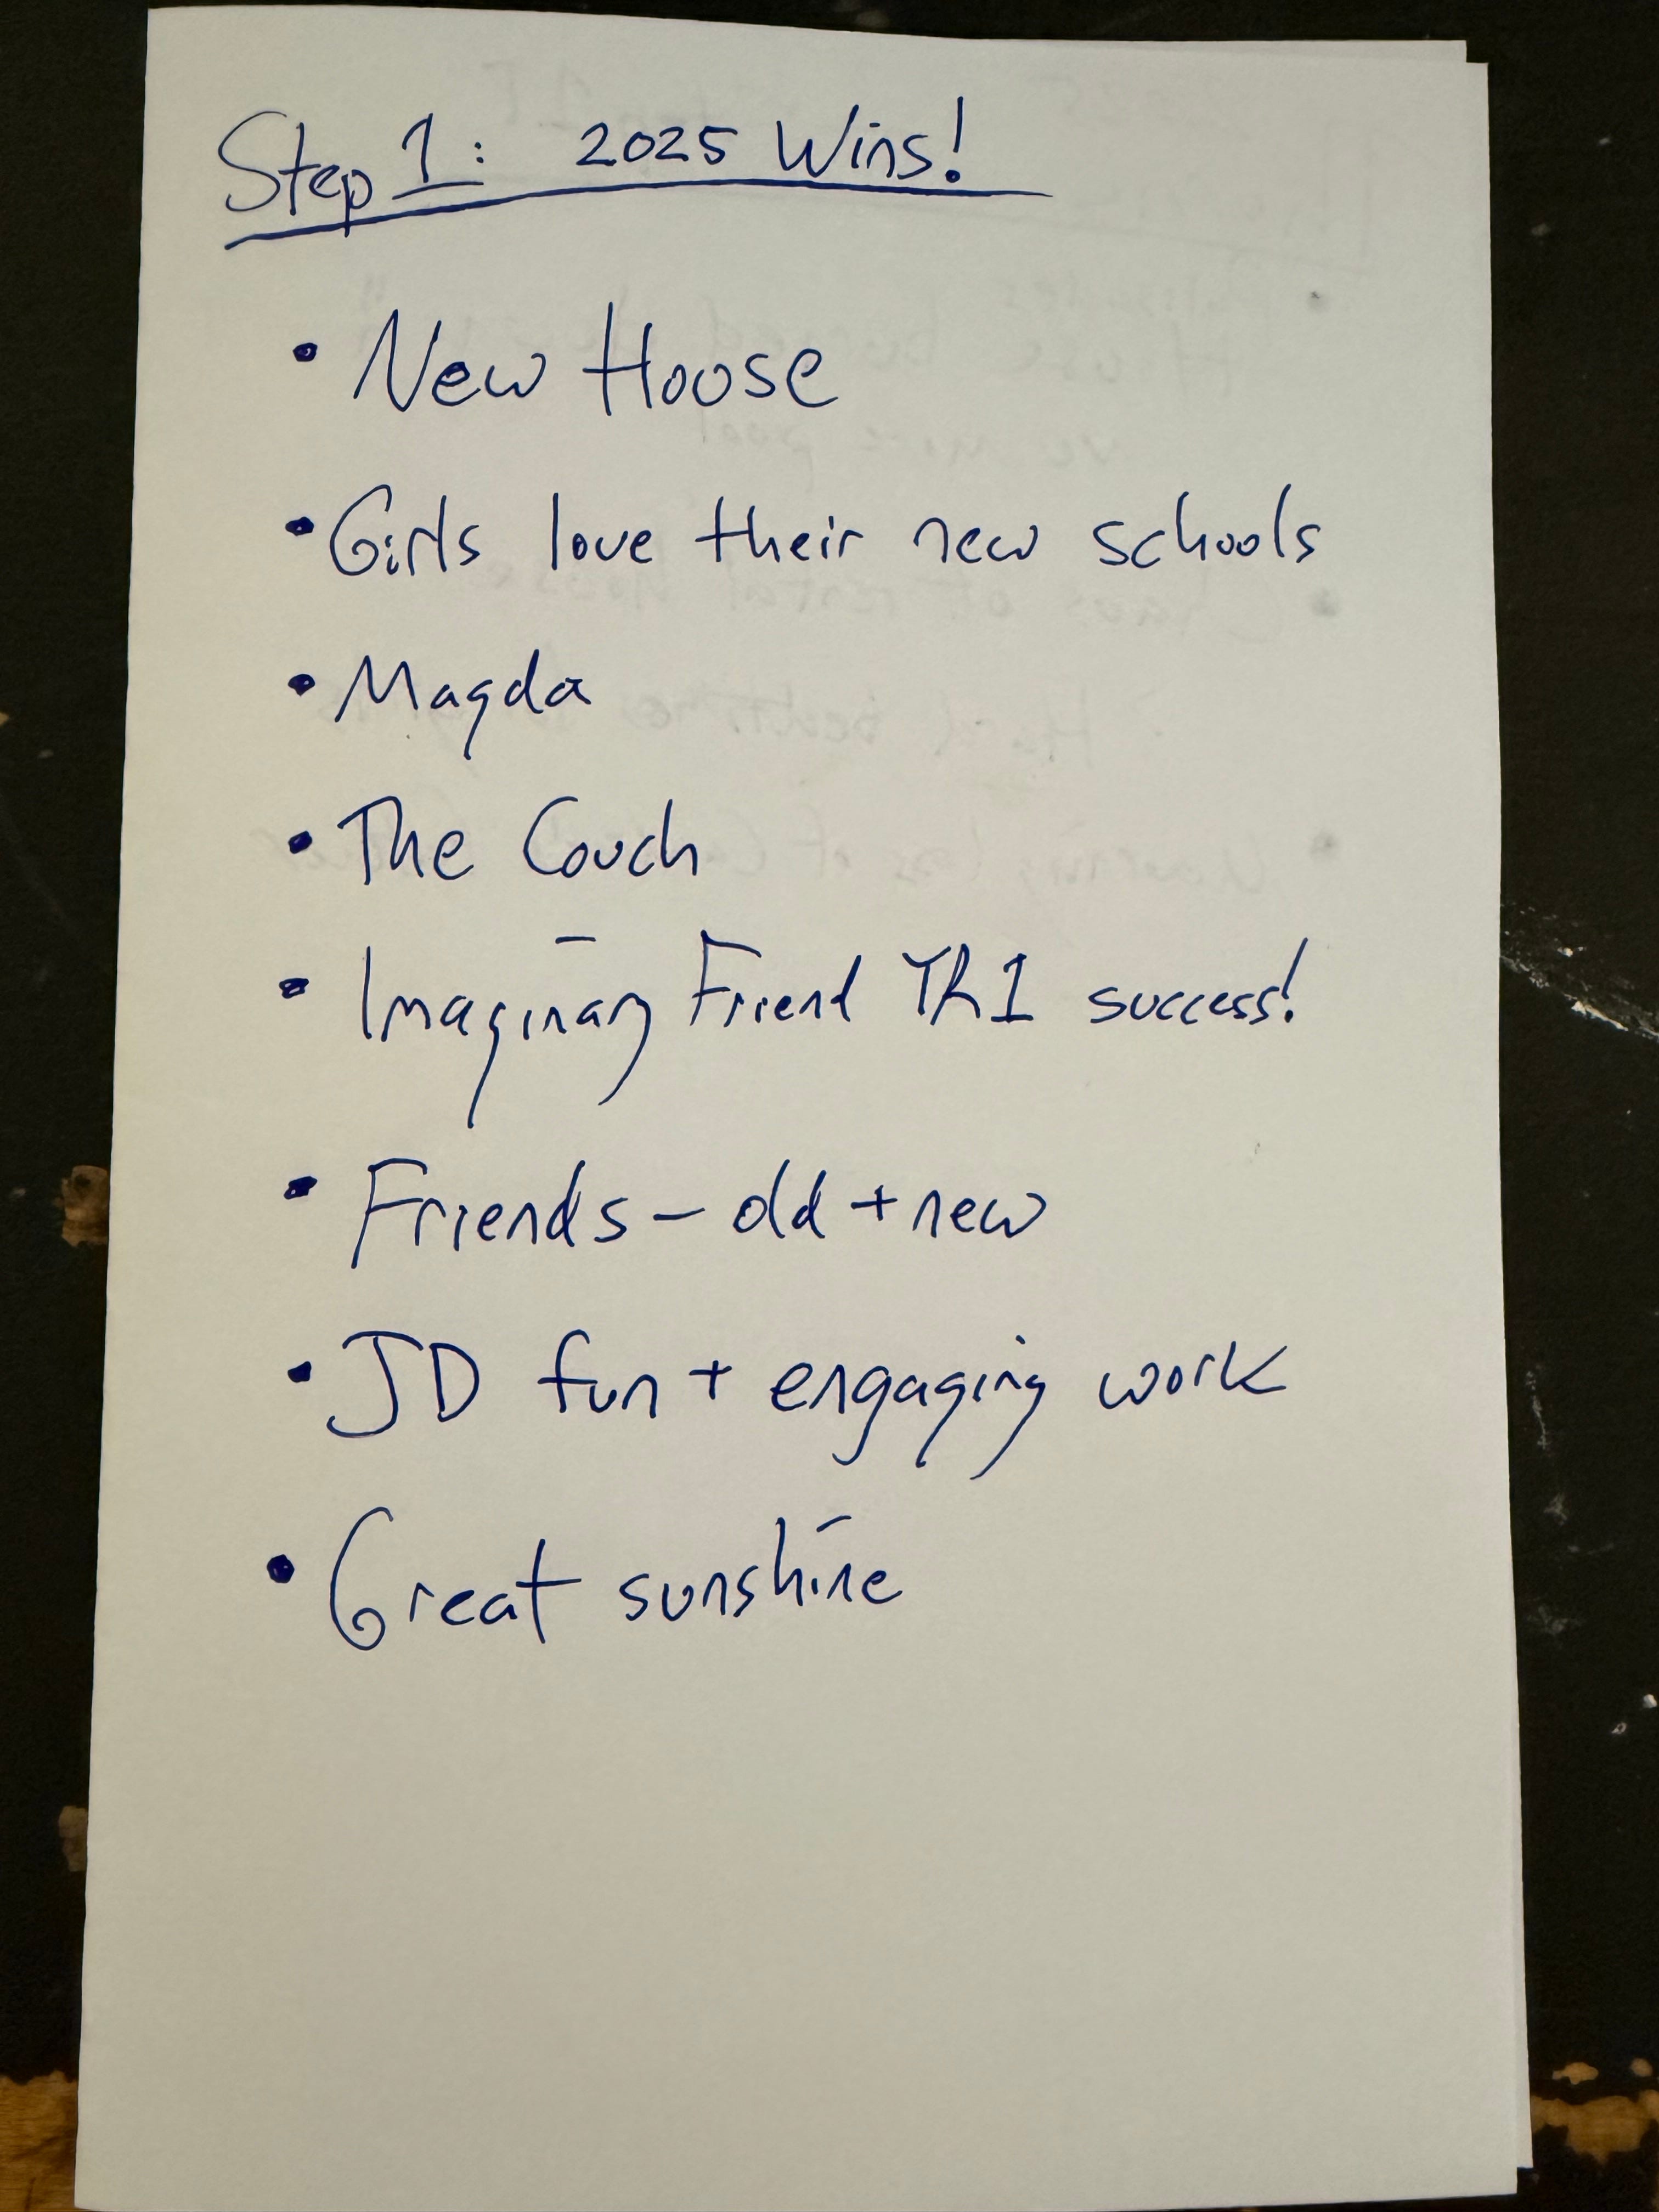 Step 1: 2025 Wins!
• New House
• Girls love their new schools
• Magda
• The Couch
• Imaginary Friend YR1 success!
• Friends - old + new
• JD fun + engaging work
• Great sunshine